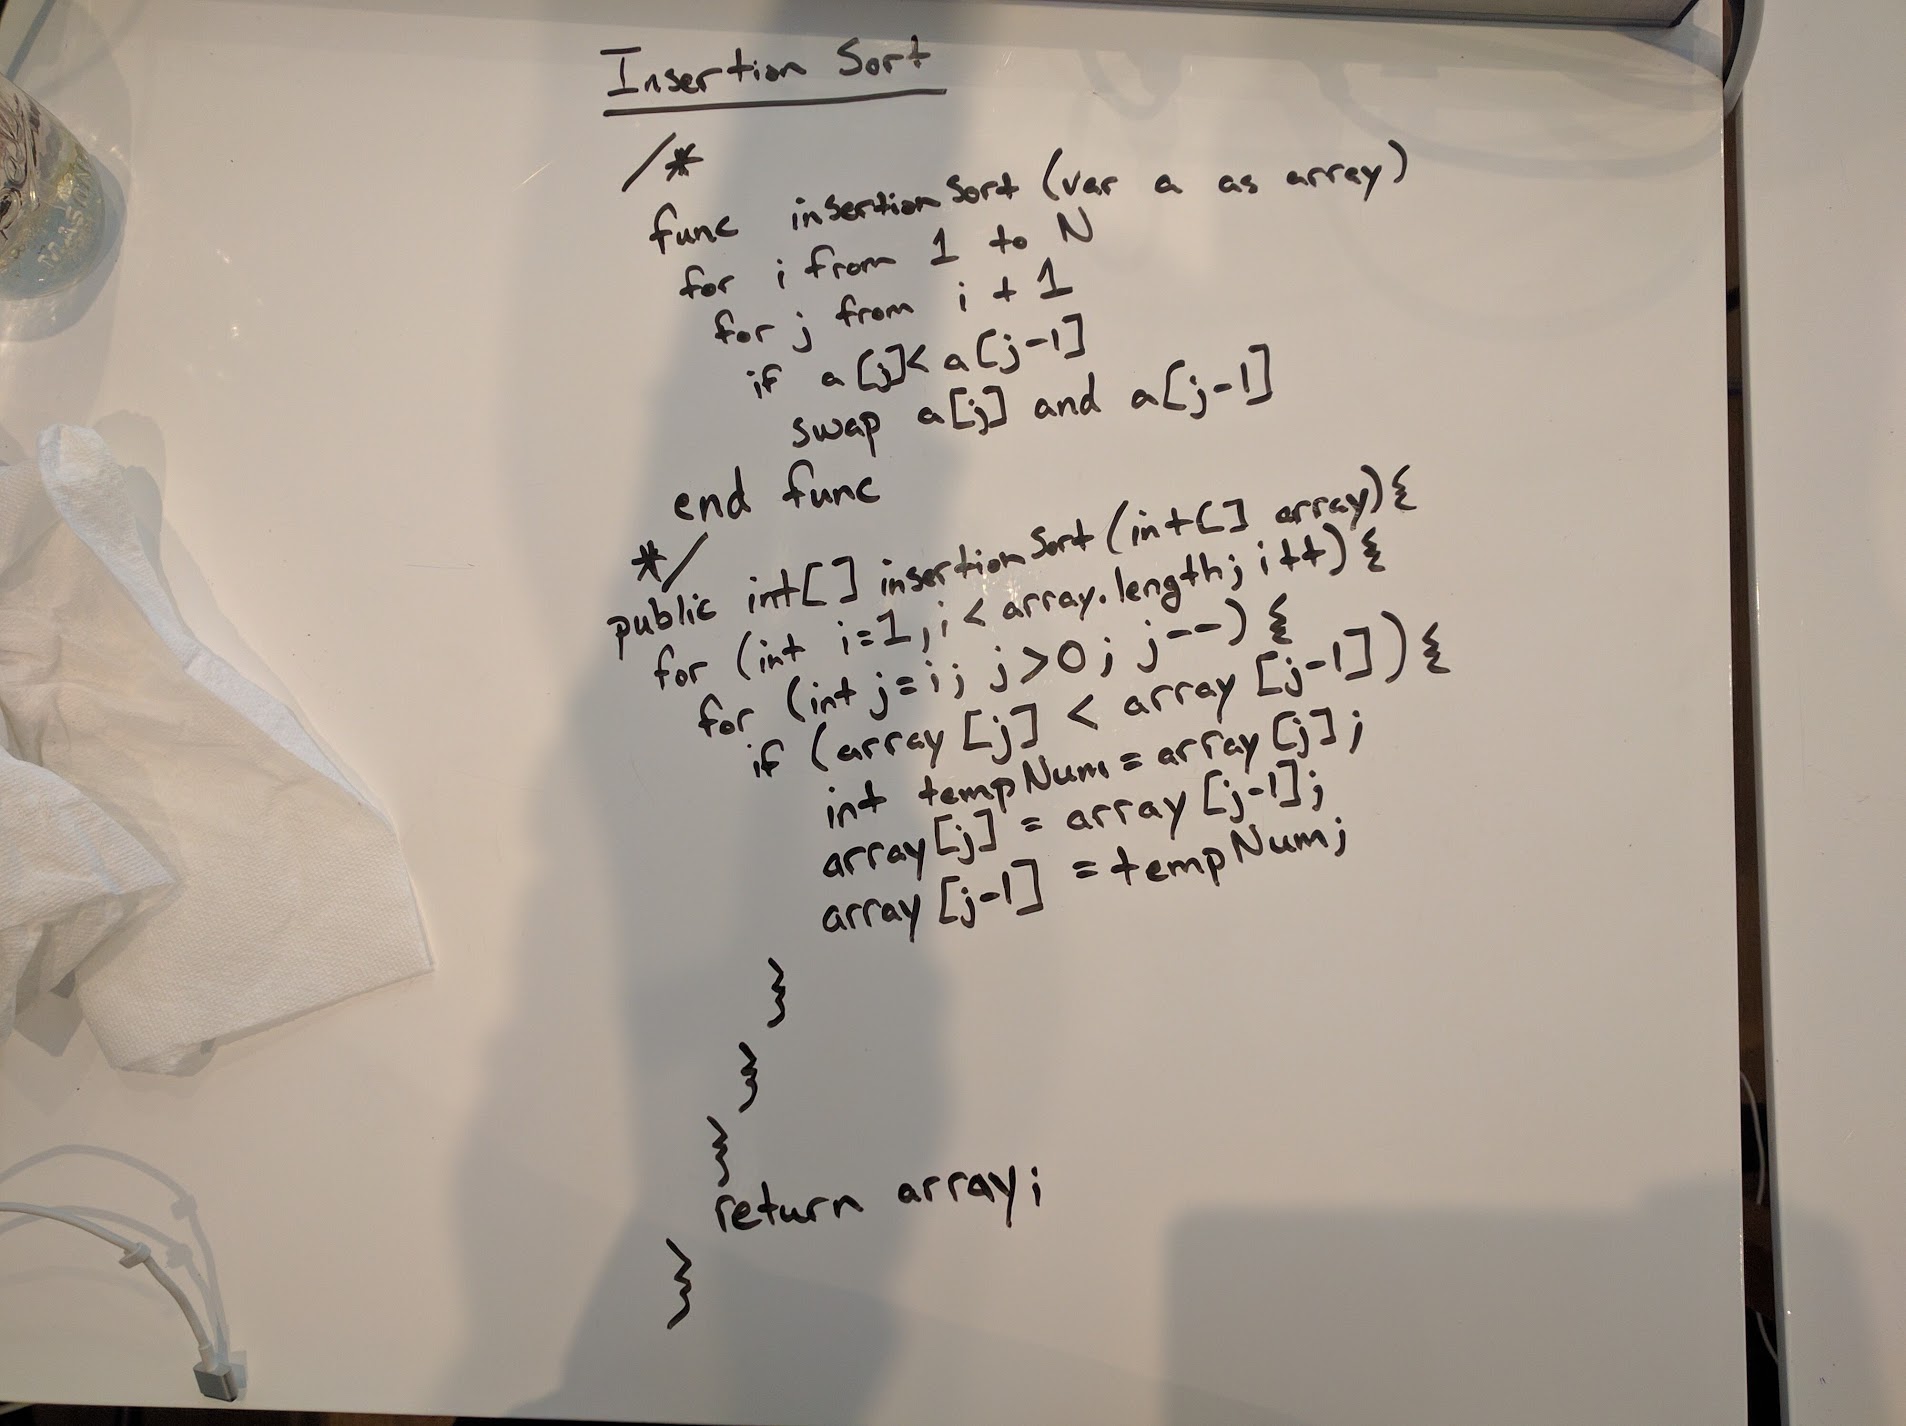 Insertion Sort
/*
func insertionSort (var a as array)
for i from 1 to N
for j from i + 1
if a[j]< a[j-1]
swap a[j] and a[j-1]
end func
*/
public int[] insertionSort (int[] array){
for (int i=1; i < array.length; i++) {
for (int j=i; j>0; j--) {
if (array [j] < array [j-1]) {
int tempNum = array [j];
array [j] = array [j-1];
array [j-1] = tempNum;
}
}
}
return array;
}